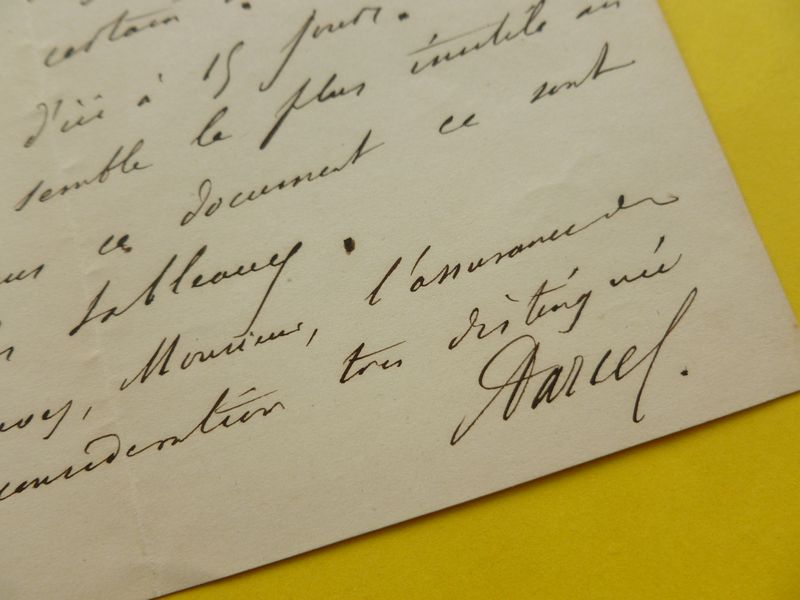 certain.
d'ici à 15 jours.
semble le plus inutile au
ce document ce sont
tableaux.
Monsieur, l'assurance de
considération très distinguée
ADarcel.